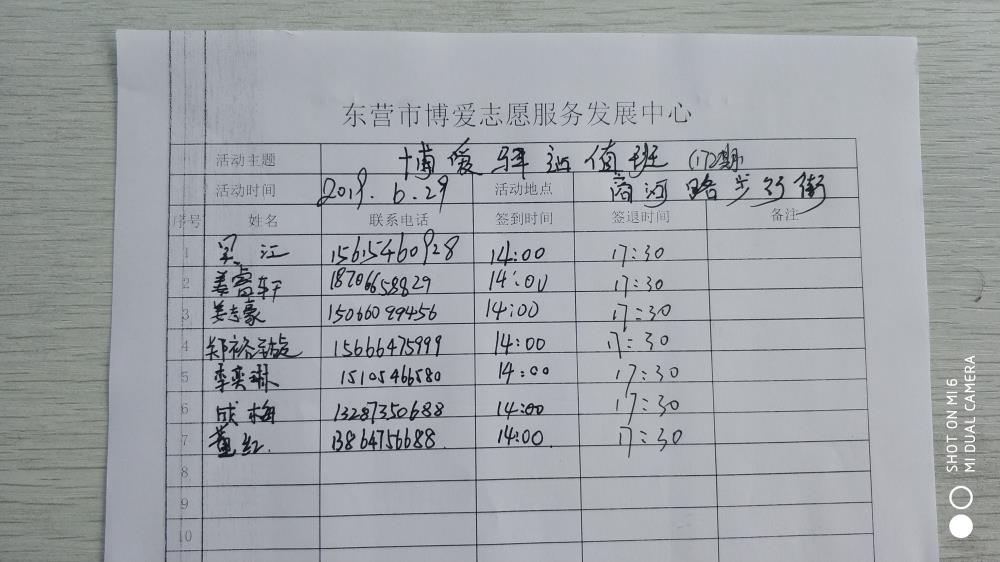 东营市博爱志愿服务发展中心
活动主题 博爱驿站值班 (172期)
活动时间 2019.6.29 活动地点 商河路步行街
序号 姓名 联系电话 签到时间 签退时间 备注
1 江 15615460928 14:00 17:30
2 姜睿轩 18706658829 14:00 17:30
3 姜志豪 15066099456 14:00 17:30
4 郑裕璇 15666475999 14:00 17:30
5 李奕琳 15105466580 14:00 17:30
6 成梅 13287350688 14:00 17:30
7 董红. 13864756688. 14:00. 17:30
8
9
10
SHOT ON MI 6
MI DUAL CAMERA